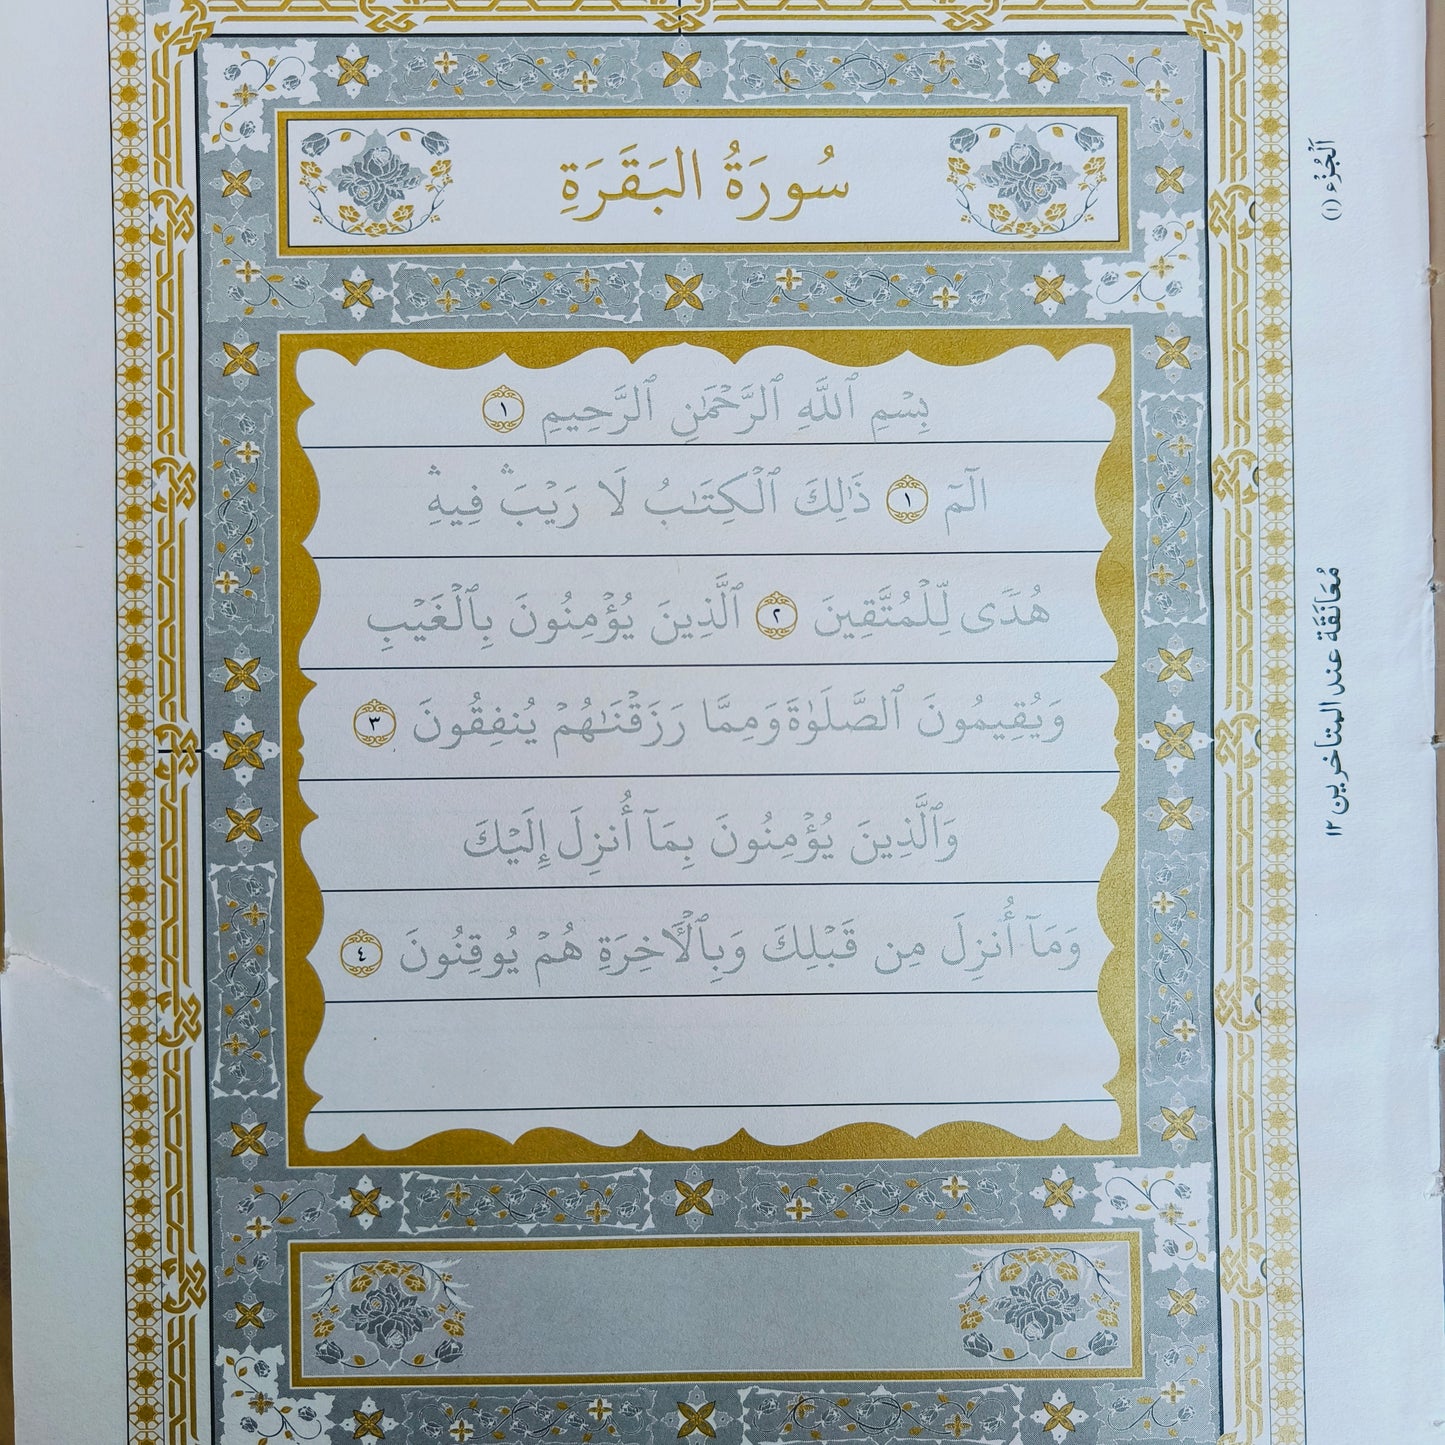 سُورَةُ البَقَرَةِ
بِسۡمِ ٱللَّهِ ٱلرَّحۡمَٰنِ ٱلرَّحِيمِ ١
الٓمٓ ١ ذَٰلِكَ ٱلۡكِتَٰبُ لَا رَيۡبَۛ فِيهِۛ
هُدٗى لِّلۡمُتَّقِينَ ٢ ٱلَّذِينَ يُؤۡمِنُونَ بِٱلۡغَيۡبِ
وَيُقِيمُونَ ٱلصَّلَوٰةَ وَمِمَّا رَزَقۡنَٰهُمۡ يُنفِقُونَ ٣
وَٱلَّذِينَ يُؤۡمِنُونَ بِمَآ أُنزِلَ إِلَيۡكَ
وَمَآ أُنزِلَ مِن قَبۡلِكَ وَبِٱلۡأٓخِرَةِ هُمۡ يُوقِنُونَ ٤
اَلْجُزْء (١)
مُعَانَقَة عند المتاخرين ١٢